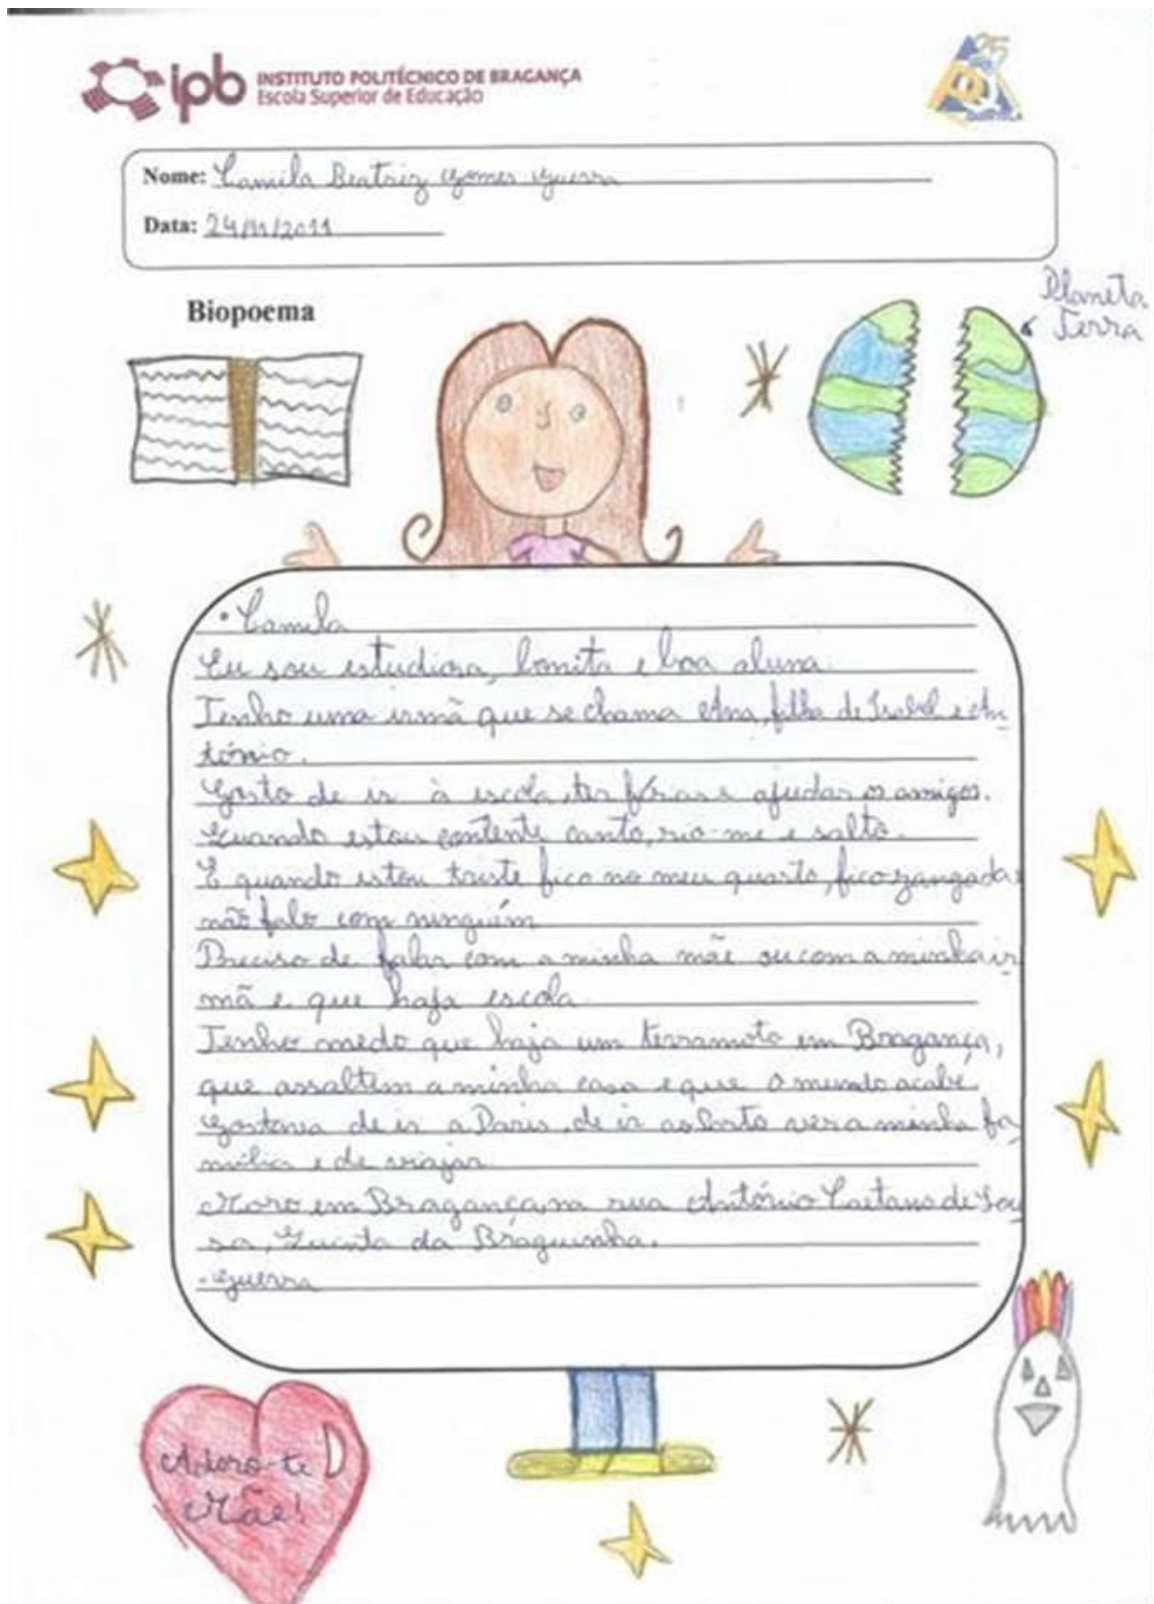 ipb INSTITUTO POLITÉCNICO DE BRAGANÇA
Escola Superior de Educação
Nome: Camila Beatriz Gomes Guerra
Data: 24/11/2011
Planeta
Terra
Biopoema
• Camila
Eu sou estudiosa, bonita e boa aluna.
Tenho uma irmã que se chama Ana, filha de Isabel e An
tónio.
Gosto de ir à escola, ter férias e ajudar os amigos.
Quando estou contente canto, rio-me e salto.
E quando estou triste fico no meu quarto, fico zangada e
não falo com ninguém
Preciso de falar com a minha mãe ou com a minha ir
mã e que haja escola
Tenho medo que haja um terramoto em Bragança,
que assaltem a minha casa e que o mundo acabe.
Gostava de ir a Paris, de ir ao Porto ver a minha fa
mília e de viajar.
Moro em Bragança, na rua António Caetano de Sou
sa, Quinta da Braguinha.
• Guerra
Adoro-te
Mãe!